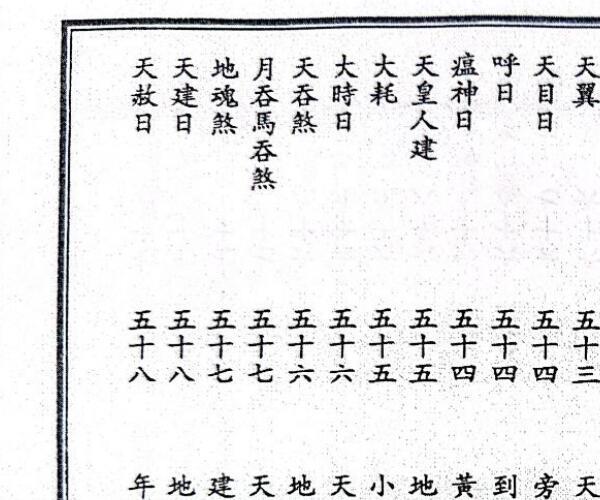 天翼 五十三 天
天目日 五十四 旁
呼日 五十四 到
瘟神日 五十四 黃
天皇人建 五十五 地
大耗 五十五 小
大時日 五十六 天
天吞煞 五十六 地
月吞馬吞煞 五十七 天
地魂煞 五十七 建
天建日 五十八 地
天赦日 五十八 年